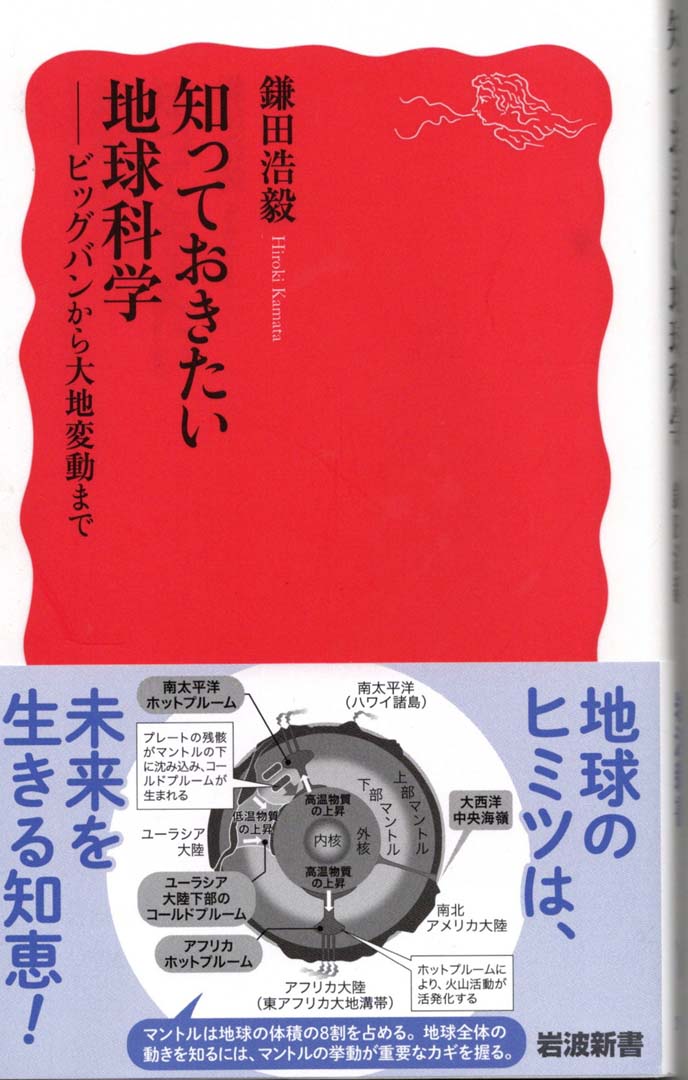 鎌田浩毅
Hiroki Kamata
知っておきたい
地球科学
――ビッグバンから大地変動まで
地球の
ヒミツは、
未来を
生きる知恵！
南太平洋
ホットプルーム
南太平洋
（ハワイ諸島）
プレートの残骸
がマントルの下
に沈み込み、コー
ルドプルームが
生まれる
ユーラシア
大陸
低温物質
の上昇
高温物質
の上昇
上部マントル
下部マントル
外核
内核
高温物質
の上昇
大西洋
中央海嶺
ユーラシア
大陸下部の
コールドプルーム
アフリカ
ホットプルーム
南北
アメリカ大陸
アフリカ大陸
（東アフリカ大地溝帯）
ホットプルームに
より、火山活動が
活発化する
マントルは地球の体積の8割を占める。地球全体の
動きを知るには、マントルの挙動が重要なカギを握る。
岩波新書